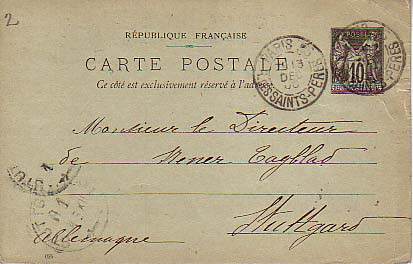 2
RÉPUBLIQUE FRANÇAISE
CARTE POSTALE
Ce côté est exclusivement réservé à l'adresse
PARIS
13
DEC
SAINTS-PERES
POSTES
10
Monsieur le Directeur
de Wener Tagblad
Stuttgard
Allemagne